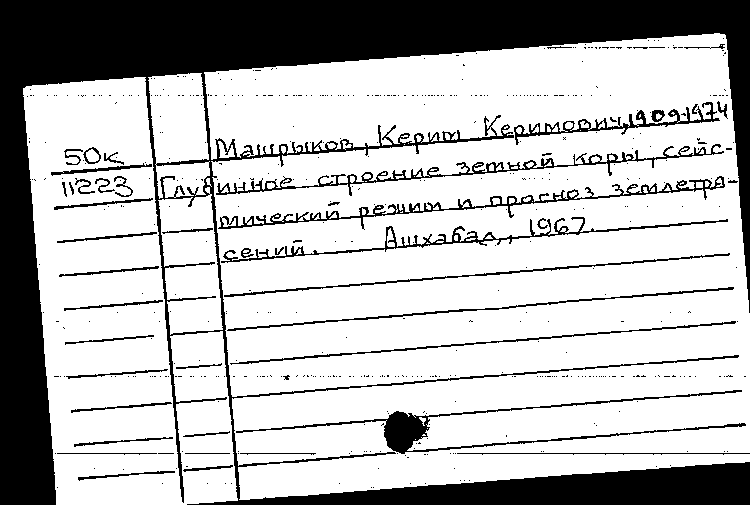 Машрыков, Керим Керимович, 1909-1974
50к
11223 Глубинное строение земной коры, сейс-
мический режим и прогноз землетря-
сений. Ашхабад,, 1967.